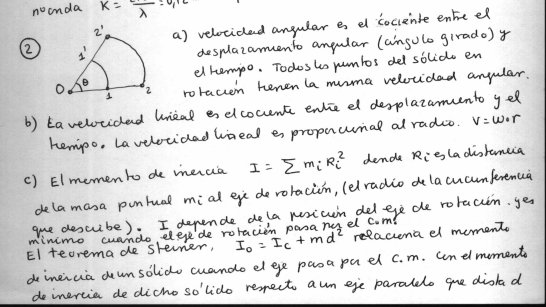 nº onda K = /λ = 0,12
② 2' 1' O θ 1 2
a) velocidad angular es el cociente entre el
desplazamiento angular (ángulo girado) y
el tiempo. Todos los puntos del sólido en
rotación tienen la misma velocidad angular.
b) La velocidad lineal es el cociente entre el desplazamiento y el
tiempo. La velocidad lineal es proporcional al radio. V = ω·r
c) El momento de inercia I = Σ mᵢ Rᵢ² donde Rᵢ es la distancia
de la masa puntual mᵢ al eje de rotación, (el radio de la circunferencia
que describe). I depende de la posición del eje de rotación. y es
mínimo cuando el eje de rotación pasa por el c.m.
El teorema de Steiner, I₀ = I_c + md² relaciona el momento
de inercia de un sólido cuando el eje pasa por el c.m. con el momento
de inercia de dicho sólido respecto a un eje paralelo que dista d